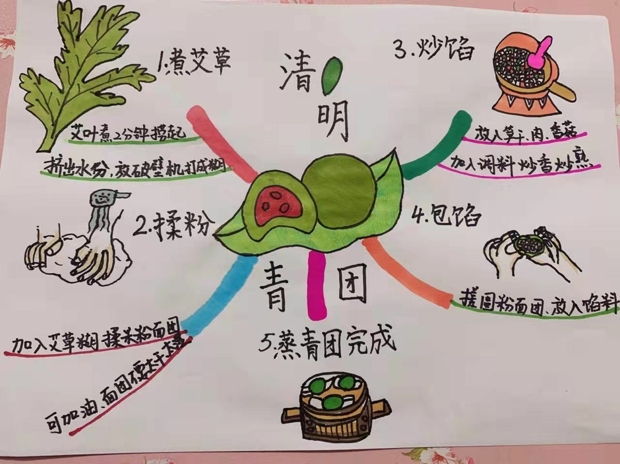 清明
青团
1.煮艾草
艾叶煮2分钟捞起
挤出水份,放破壁机打成糊
2.揉粉
加入艾草糊揉米粉面团
可加油、面团
3.炒馅
放入笋干、肉、香菇
加入调料炒香炒熟
4.包馅
搓圆粉面团、放入馅料
5.蒸青团完成